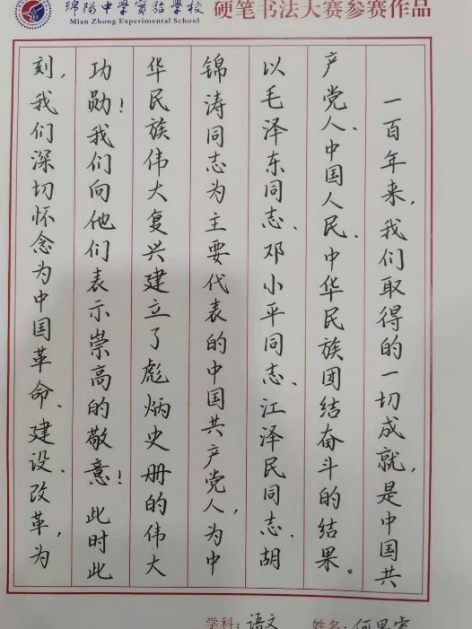 绵阳中学实验学校 硬笔书法大赛参赛作品
Mian Zhong Experimental School
一百年来，我们取得的一切成就，是中国共
产党人、中国人民、中华民族团结奋斗的结果。
以毛泽东同志、邓小平同志、江泽民同志、胡
锦涛同志为主要代表的中国共产党人，为中
华民族伟大复兴建立了彪炳史册的伟大
功勋！我们向他们表示崇高的敬意！此时此
刻，我们深切怀念为中国革命、建设、改革，为
学科：语文 姓名：何